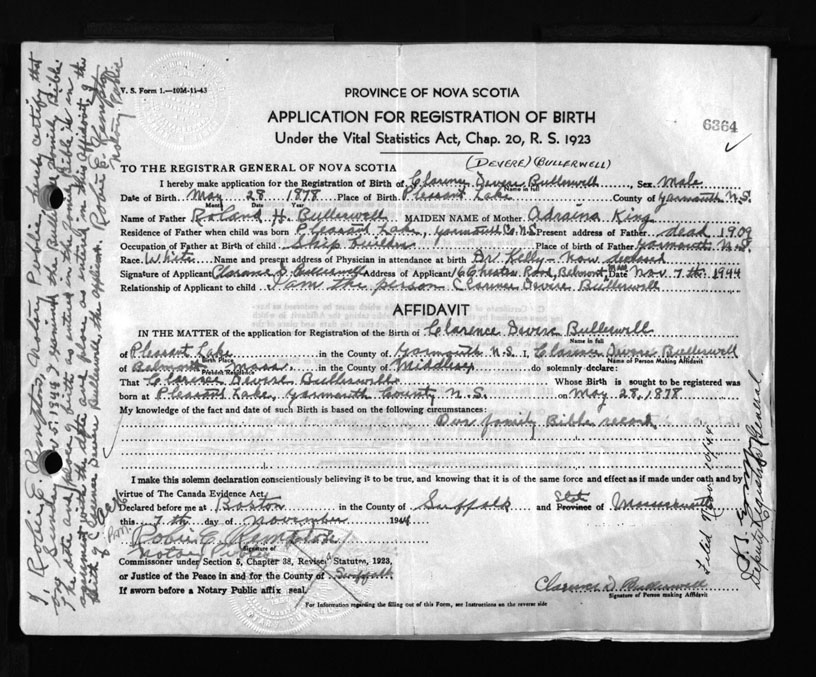 V. S. Form 1.—10M-11-43
PROVINCE OF NOVA SCOTIA
APPLICATION FOR REGISTRATION OF BIRTH
Under the Vital Statistics Act, Chap. 20, R. S. 1923
6364
(DEVERE) (BULLERWELL)
TO THE REGISTRAR GENERAL OF NOVA SCOTIA
I hereby make application for the Registration of Birth of Clarence Devere Bullerwell, Sex Male
Name in full
Date of Birth May 28 1878 Place of Birth Pleasant Lake County of Yarmouth N.S.
Month Year
Name of Father Roland H. Bullerwell MAIDEN NAME of Mother Adraina King
Residence of Father when child was born Pleasant Lake, Yarmouth Co. N.S. Present address of Father dead 1909
Occupation of Father at Birth of child Ship builder Place of birth of Father Yarmouth N.S.
Race White Name and present address of Physician in attendance at birth Dr Kelly - Now deceased
Signature of Applicant Clarence D Bullerwell Address of Applicant 166 Road, Belmont, Mass Date Nov 7th 1944
Relationship of Applicant to child I am the person Clarence Devere Bullerwell
AFFIDAVIT
IN THE MATTER of the application for Registration of the Birth of Clarence Devere Bullerwell
Name in full
of Pleasant Lake in the County of Yarmouth N.S. I, Clarence Devere Bullerwell
Birth Place Name of Person Making Affidavit
of Belmont Mass. in the County of Middlesex do solemnly declare:
Present Residence
That Clarence Devere Bullerwell Whose Birth is sought to be registered was
born at Pleasant Lake, Yarmouth County N.S. on May 28, 1878
My knowledge of the fact and date of such Birth is based on the following circumstances:
Our family Bible record
I make this solemn declaration conscientiously believing it to be true, and knowing that it is of the same force and effect as if made under oath and by
virtue of The Canada Evidence Act.
Declared before me at Boston in the County of Suffolk and Province of State Massachusetts
this 7th day of November 1944
Robie C. Kempton
Notary Public
Signature of
Commissioner under Section 5, Chapter 38, Revised Statutes, 1923,
or Justice of the Peace in and for the County of Suffolk
If sworn before a Notary Public affix seal.
Clarence D Bullerwell
Signature of Person making Affidavit
For Information regarding the filling out of this Form, see Instructions on the reverse side
I, Robie C. Kempton, Notary Public hereby certify that
on Sunday Nov 5, 1944 I examined the Bullerwell family Bible.
The date and place of birth as entered in the family Bible is in
agreement with the date and place as entered in this Affidavit
Birth of Clarence Devere Bullerwell the applicant. Robie C. Kempton
Notary Public
Filed Nov 10/44
Deputy Registrar General